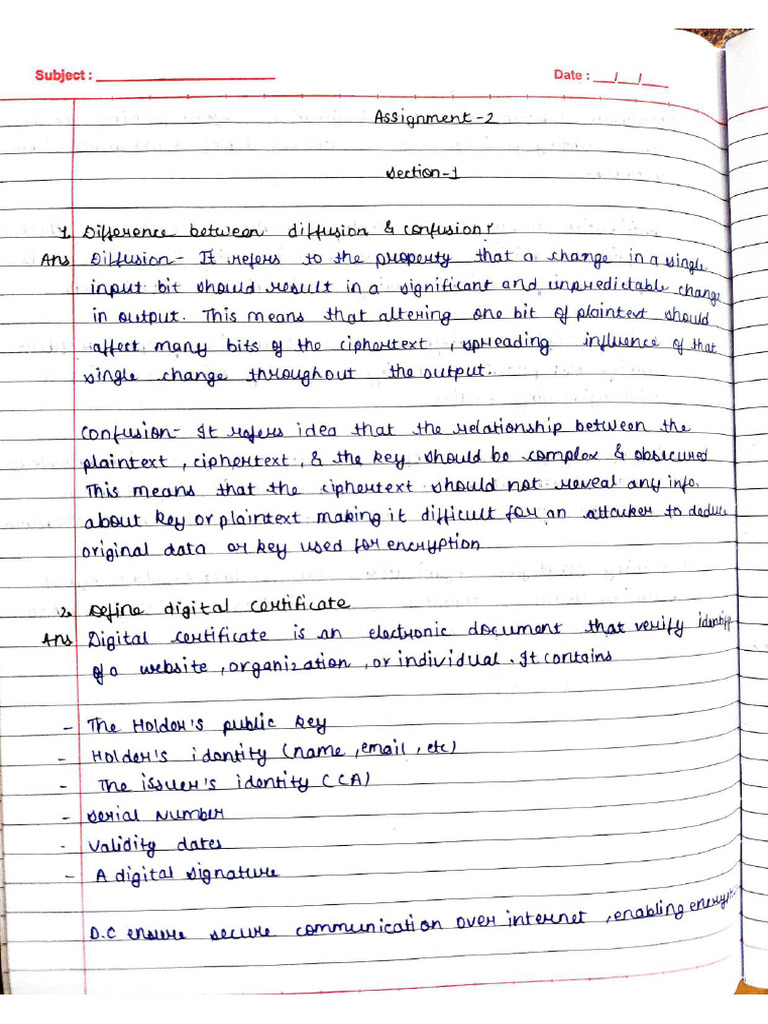 Subject : ____________________
Date : ___/___/____
Assignment-2
Section-1
1. Difference between diffusion & confusion?
Ans Diffusion- It refers to the property that a change in a single
input bit should result in a significant and unpredictable change
in output. This means that altering one bit of plaintext should
affect many bits of the ciphertext, spreading influence of that
single change throughout the output.
Confusion- It refers idea that the relationship between the
plaintext, ciphertext, & the key should be complex & obscured
This means that the ciphertext should not reveal any info.
about key or plaintext making it difficult for an attacker to deduce
original data or key used for encryption
2. Define digital certificate
Ans Digital certificate is an electronic document that verify
of a website, organization, or individual. It contains
- The Holder's public key
- Holder's identity (name, email, etc)
- The issuer's identity (CCA)
- Serial Number
- Validity dates
- A digital signature
D.C ensure secure communication over internet, enabling